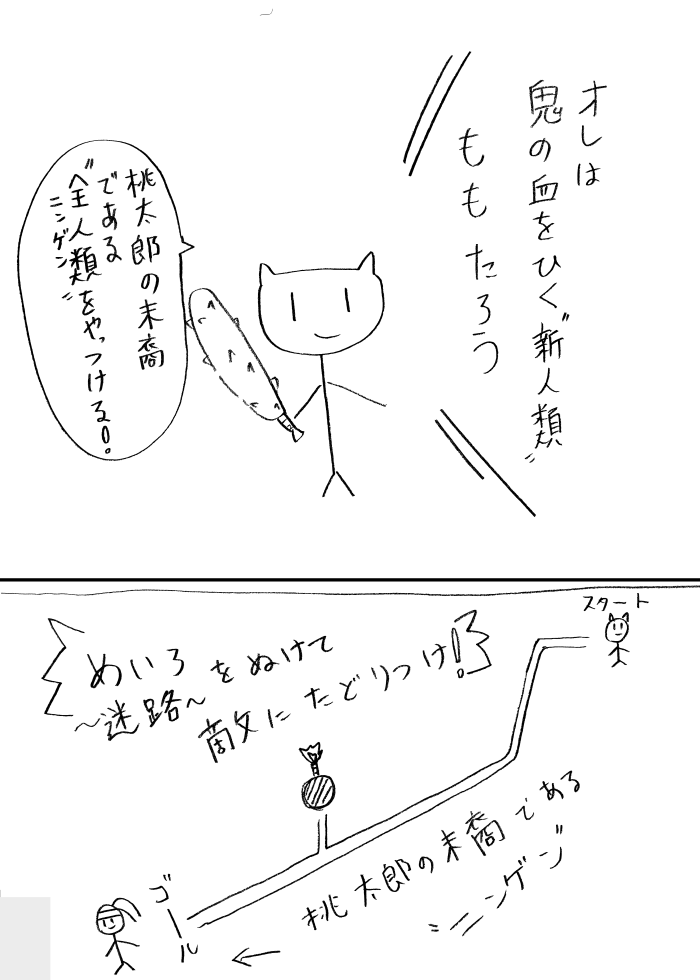 オレは
鬼の血をひく"新人類"
ももたろう
桃太郎の末裔
である
"全人類"をやっつける!
ニンゲン
スタート
めいろをぬけて
~迷路~
敵にたどりつけ!
桃太郎の末裔である
"ニンゲン"
ゴール